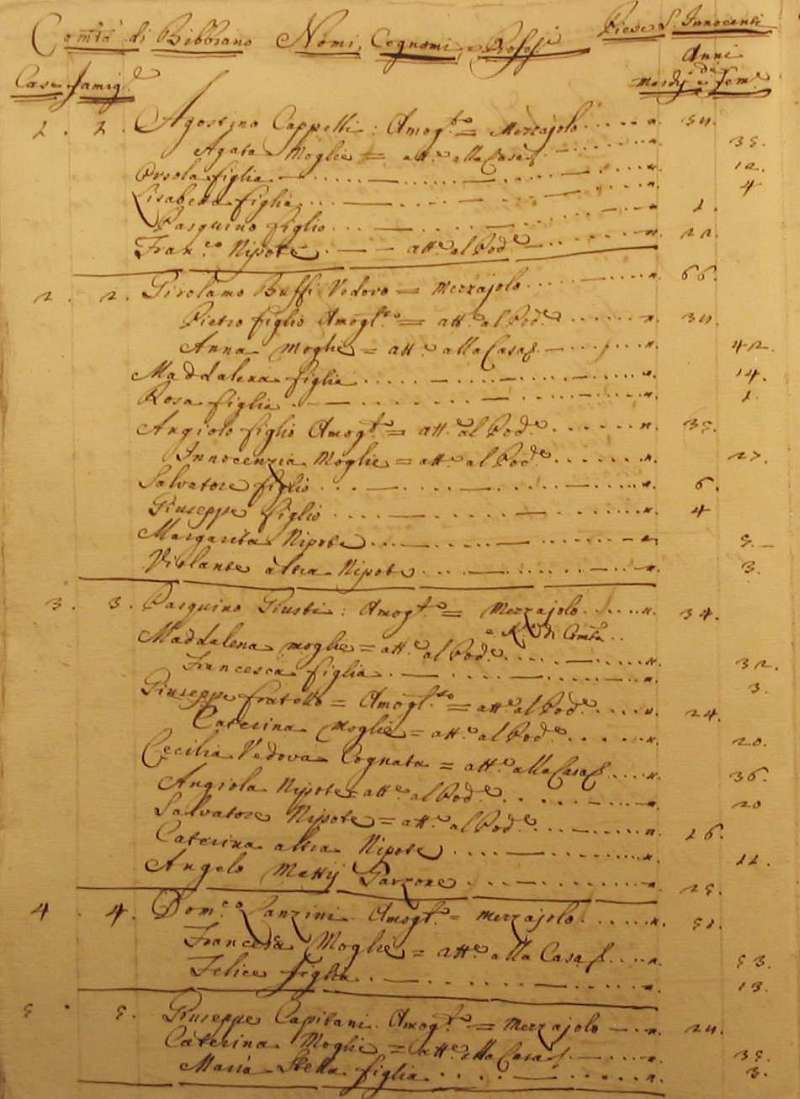 Comtà di Bibbiano Nomi, Cognomi, e Profess.i Pieve S. Innocenti
Case Famig.e Anni
Maschj e Fem.e
1. 1. Agostino Cappelli: Amog.to = Mezzajolo n. 30
Agata Moglie = att.e alla Casa 35.
Orsola figlia n. 12.
Lisabetta figlia n. 4
Pasquino figlio n. 1.
Fran.co Nipote att.e al Pod.e n. 22.
2. 2. Girolamo Buffi Vedovo = Mezzajolo n. 66.
Pietro figlio Amogl.to = att.e al Pod.e n. 30
Anna Moglie = att.e alla Casa n. 42.
Maddalena figlia n. 14.
Rosa figlia n. 1.
Angiolo figlio Amog.to = att.e al Pod.e n. 35.
Innocenzia Moglie = att.e al Pod.e n. 27.
Salvatore figlio n. 6.
Giuseppe figlio n. 4
Margarita Nipote n. 5.
Violante altra Nipote n. 3.
3. 3. Pasquino Giusti: Amog.to = Mezzajolo n. 34.
e di Comtà
Maddalena moglie = att.e al Pod.e n. 32.
Francesca figlia n. 3.
Giuseppe fratello = Amogl.to = att.e al Pod.e n. 24.
Caterina Moglie = att.e al Pod.e n. 20.
Cecilia Vedova Cognata = att.e alla Casa n. 36.
Angiola Nipote = att.e al Pod.e n. 20
Salvatore Nipote = att.e al Pod.e n. 16.
Caterina altra Nipote n. 11.
Angelo Mattij Garzone n. 15.
4. 4. Dom.co Lanzini Amog.to = Mezzajolo n. 51.
Francesca Moglie = att.e alla Casa n. 53.
Felice figlia n. 13.
5. 5. Giuseppe Capitani Amog.to = Mezzajolo n. 24.
Caterina Moglie = att.e alla Casa n. 35.
Maria Stella figlia n. 3.